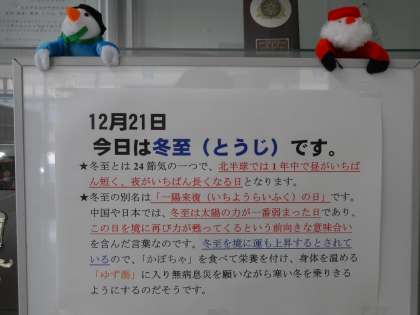 12月21日
今日は冬至（とうじ）です。
★冬至とは24節気の一つで、北半球では1年中で昼がいちばん
短く、夜がいちばん長くなる日となります。
★冬至の別名は「一陽来復（いちようらいふく）の日」です。
中国や日本では、冬至は太陽の力が一番弱まった日であり、
この日を境に再び力が甦ってくるという前向きな意味合い
を含んだ言葉なのです。冬至を境に運も上昇するとされて
いるので、「かぼちゃ」を食べて栄養を付け、身体を温める
「ゆず湯」に入り無病息災を願いながら寒い冬を乗りきる
ようにするのだそうです。